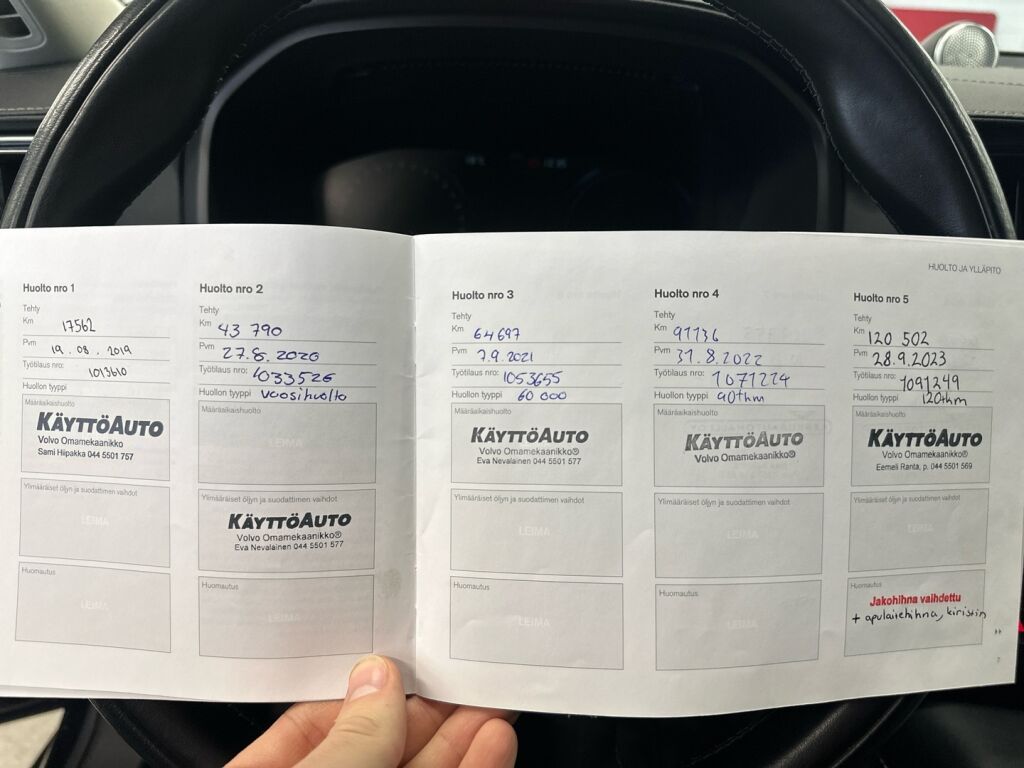 HUOLTO JA YLLÄPITO
Huolto nro 1
Tehty
Km 17562
Pvm 19.08.2019
Työtilaus nro: 1013610
Huollon tyyppi
Määräaikaishuolto
KÄYTTÖAUTO
Volvo Omamekaanikko
Sami Hiipakka 044 5501 757
Ylimääräiset öljyn ja suodattimen vaihdot
LEIMA
Huomautus
LEIMA
Huolto nro 2
Tehty
Km 43 790
Pvm 27.8.2020
Työtilaus nro: 1033526
Huollon tyyppi vuosihuolto
Määräaikaishuolto
LEIMA
Ylimääräiset öljyn ja suodattimen vaihdot
KÄYTTÖAUTO
Volvo Omamekaanikko®
Eva Nevalainen 044 5501 577
Huomautus
LEIMA
Huolto nro 3
Tehty
Km 64697
Pvm 7.9.2021
Työtilaus nro: 1053655
Huollon tyyppi 60 000
Määräaikaishuolto
KÄYTTÖAUTO
Volvo Omamekaanikko®
Eva Nevalainen 044 5501 577
Ylimääräiset öljyn ja suodattimen vaihdot
LEIMA
Huomautus
LEIMA
Huolto nro 4
Tehty
Km 91136
Pvm 31.8.2022
Työtilaus nro: 1071224
Huollon tyyppi 90thm
Määräaikaishuolto
KÄYTTÖAUTO
Volvo Omamekaanikko®
Ylimääräiset öljyn ja suodattimen vaihdot
LEIMA
Huomautus
LEIMA
Huolto nro 5
Tehty
Km 120 502
Pvm 28.9.2023
Työtilaus nro: 1091249
Huollon tyyppi 120thm
Määräaikaishuolto
KÄYTTÖAUTO
Volvo Omamekaanikko®
Eemeli Ranta, p. 044 5501 569
Ylimääräiset öljyn ja suodattimen vaihdot
LEIMA
Huomautus
Jakohihna vaihdettu
+ apulaitehihna, kiristin